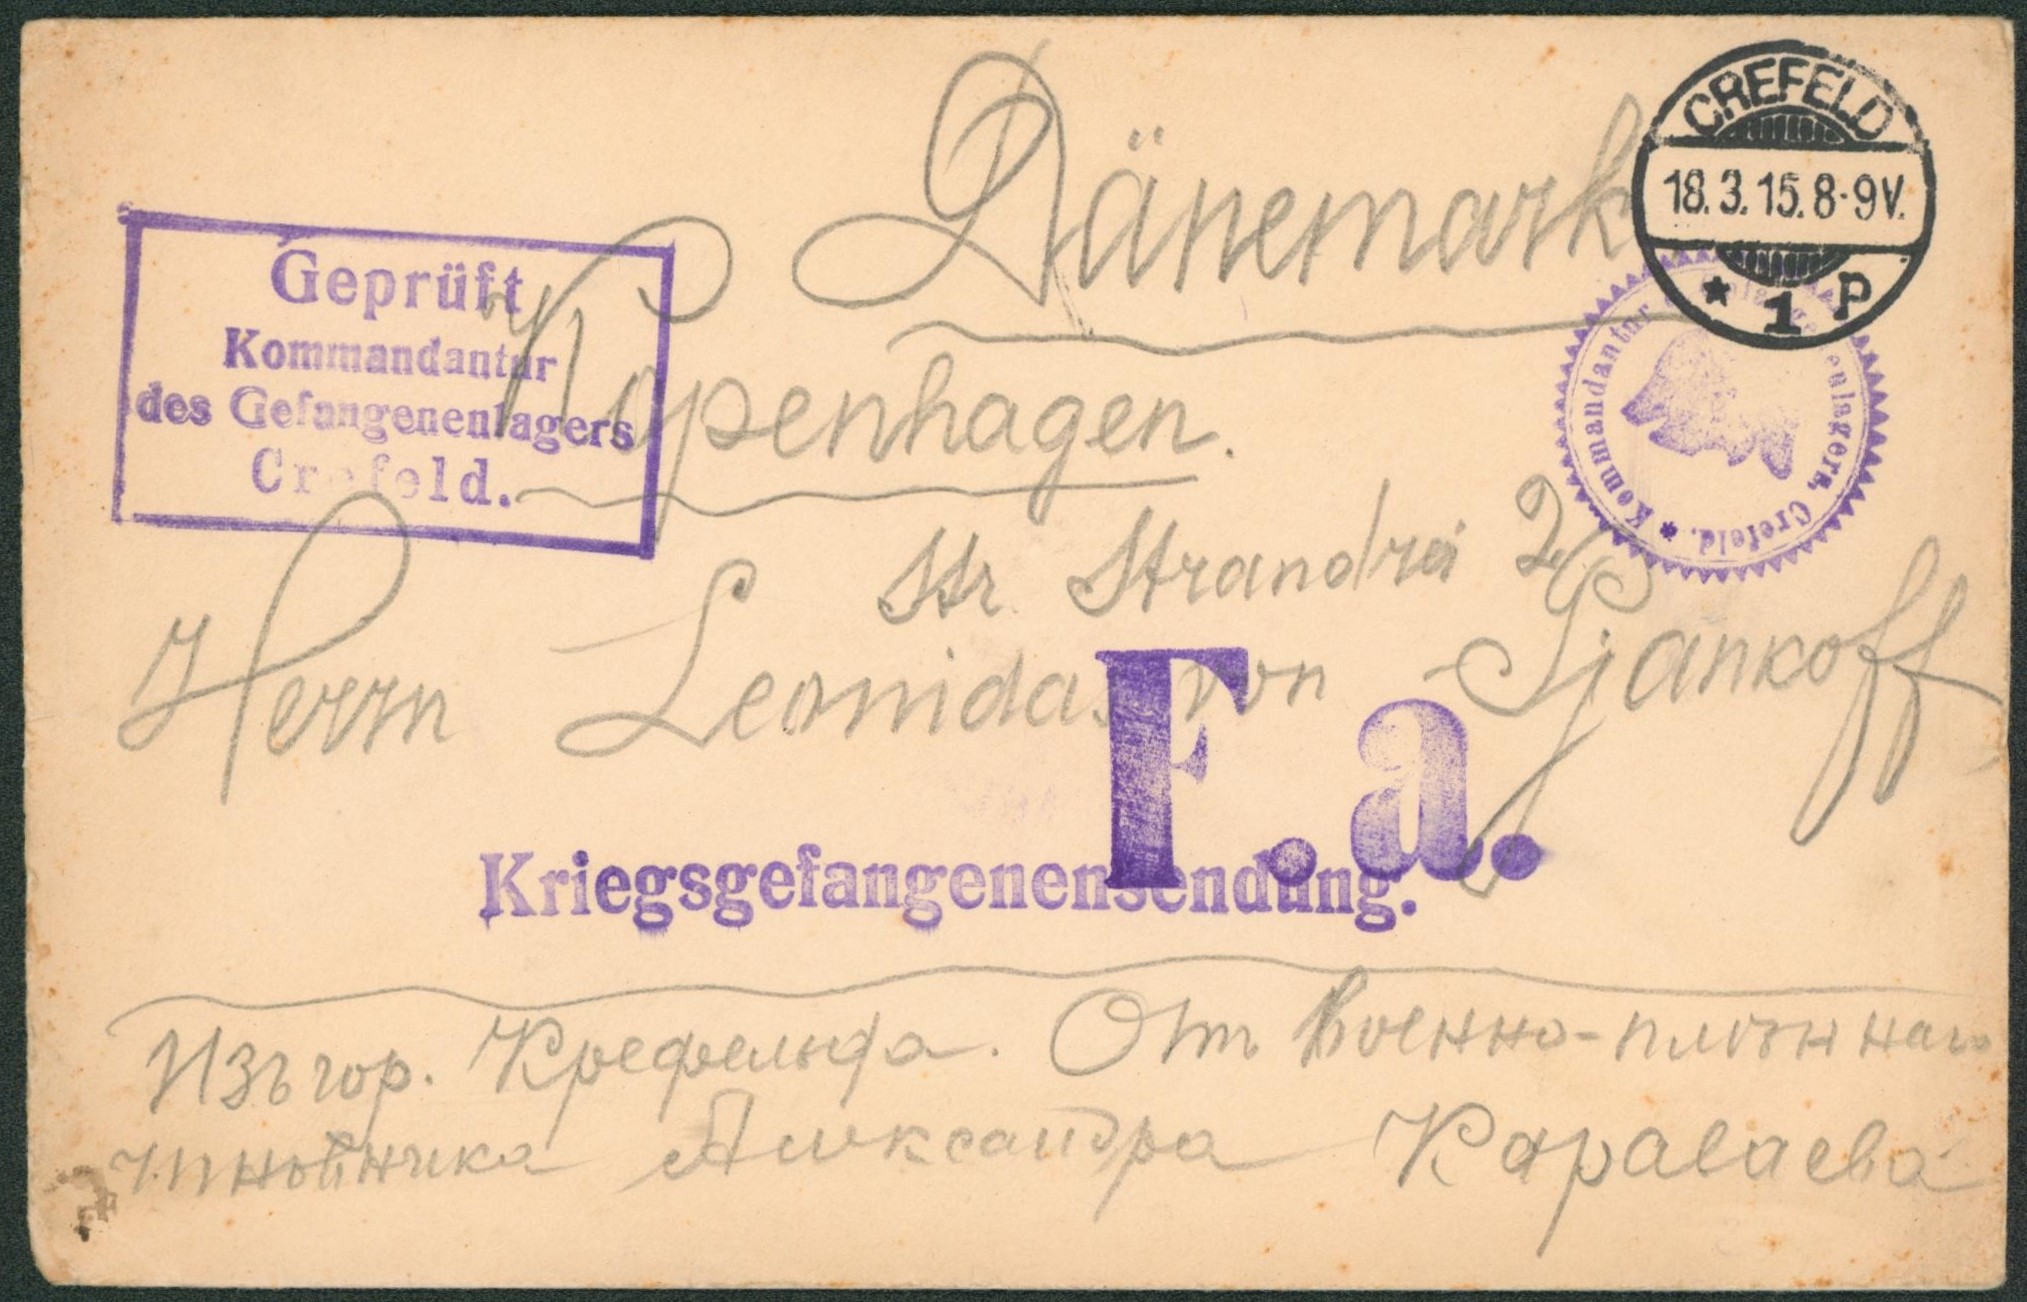 Dänemark
CREFELD
18.3.15.8-9V.
* 1 P
Geprüft
Kommandantur
des Gefangenenlagers
Crefeld.
Kopenhagen.
Kommandantur enlagers, Crefeld. *
Str. Strandrei 2
Herrn Leonidas von
F. a.
Kriegsgefangenensendung.
Изъ гор. Крефельда. От Военно-плѣннаго
чиновника Александра Караваева